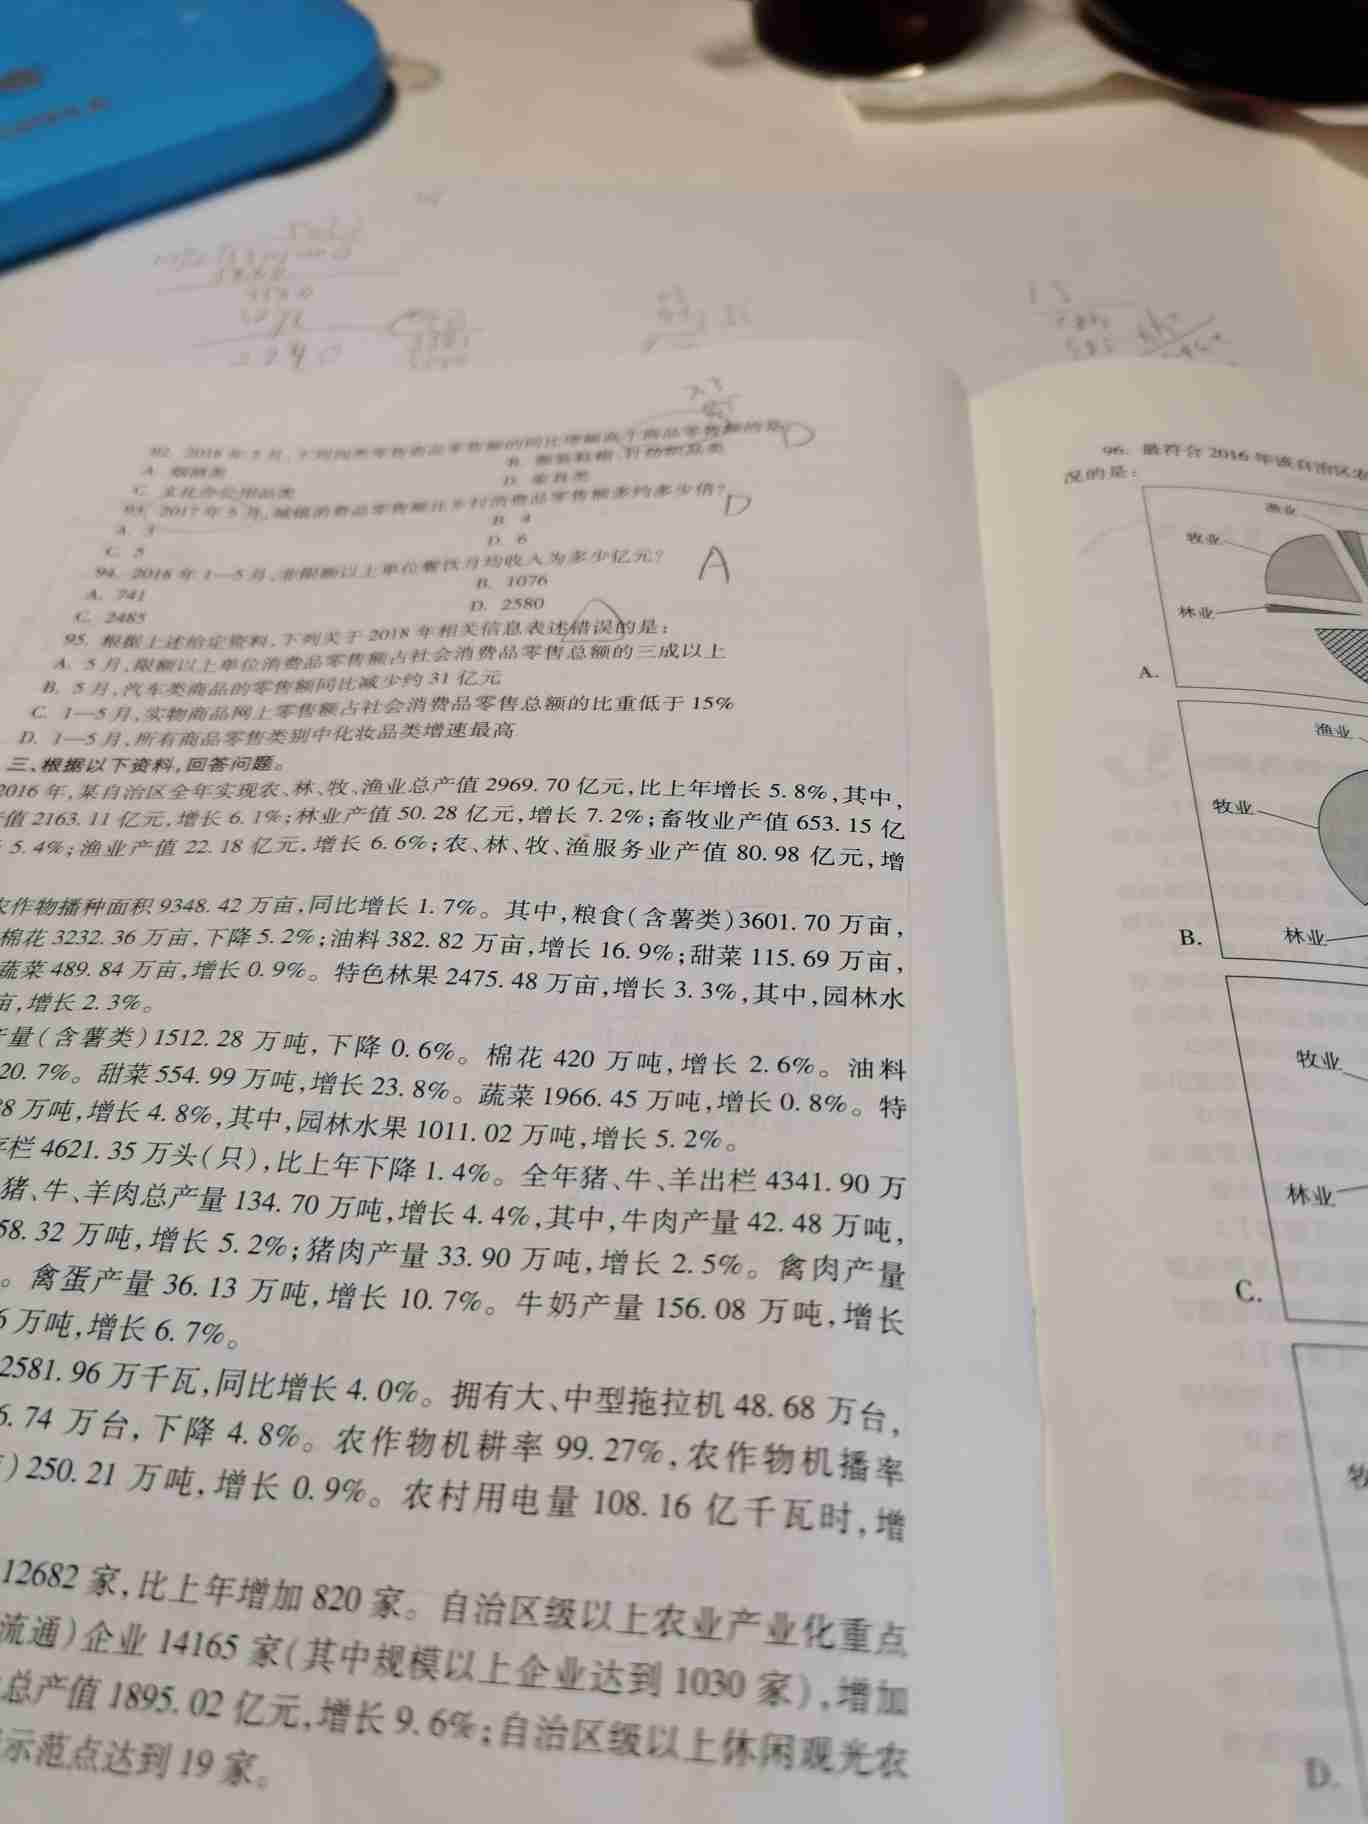 A. 烟酒类
C. 文化办公用品类
D. 家具类
93. 2017年5月,城镇消费品零售额比乡村消费品零售额多约多少倍?
D
A. 3
B. 4
C. 5
D. 6
94. 2018年1—5月,非限额以上单位餐饮月均收入为多少亿元?
A
A. 741
B. 1076
C. 2485
D. 2580
95. 根据上述给定资料,下列关于2018年相关信息表述错误的是:
A. 5月,限额以上单位消费品零售额占社会消费品零售总额的三成以上
B. 5月,汽车类商品的零售额同比减少约31亿元
C. 1—5月,实物商品网上零售额占社会消费品零售总额的比重低于15%
D. 1—5月,所有商品零售类别中化妆品类增速最高
三、根据以下资料,回答问题。
2016年,某自治区全年实现农、林、牧、渔业总产值2969.70亿元,比上年增长5.8%,其中,
值2163.11亿元,增长6.1%;林业产值50.28亿元,增长7.2%;畜牧业产值653.15亿
5.4%;渔业产值22.18亿元,增长6.6%;农、林、牧、渔服务业产值80.98亿元,增
农作物播种面积9348.42万亩,同比增长1.7%。其中,粮食(含薯类)3601.70万亩,
棉花3232.36万亩,下降5.2%;油料382.82万亩,增长16.9%;甜菜115.69万亩,
蔬菜489.84万亩,增长0.9%。特色林果2475.48万亩,增长3.3%,其中,园林水
亩,增长2.3%。
量(含薯类)1512.28万吨,下降0.6%。棉花420万吨,增长2.6%。油料
20.7%。甜菜554.99万吨,增长23.8%。蔬菜1966.45万吨,增长0.8%。特
8万吨,增长4.8%,其中,园林水果1011.02万吨,增长5.2%。
栏4621.35万头(只),比上年下降1.4%。全年猪、牛、羊出栏4341.90万
猪、牛、羊肉总产量134.70万吨,增长4.4%,其中,牛肉产量42.48万吨,
58.32万吨,增长5.2%;猪肉产量33.90万吨,增长2.5%。禽肉产量
。禽蛋产量36.13万吨,增长10.7%。牛奶产量156.08万吨,增长
6万吨,增长6.7%。
2581.96万千瓦,同比增长4.0%。拥有大、中型拖拉机48.68万台,
6.74万台,下降4.8%。农作物机耕率99.27%,农作物机播率
)250.21万吨,增长0.9%。农村用电量108.16亿千瓦时,增
12682家,比上年增加820家。自治区级以上农业产业化重点
流通)企业14165家(其中规模以上企业达到1030家),增加
总产值1895.02亿元,增长9.6%;自治区级以上休闲观光农
示范点达到19家。
96. 最符合2016年该自治区农
况的是:
渔业
牧业
林业
A.
渔业
牧业
林业
B.
牧业
林业
C.
牧
D.